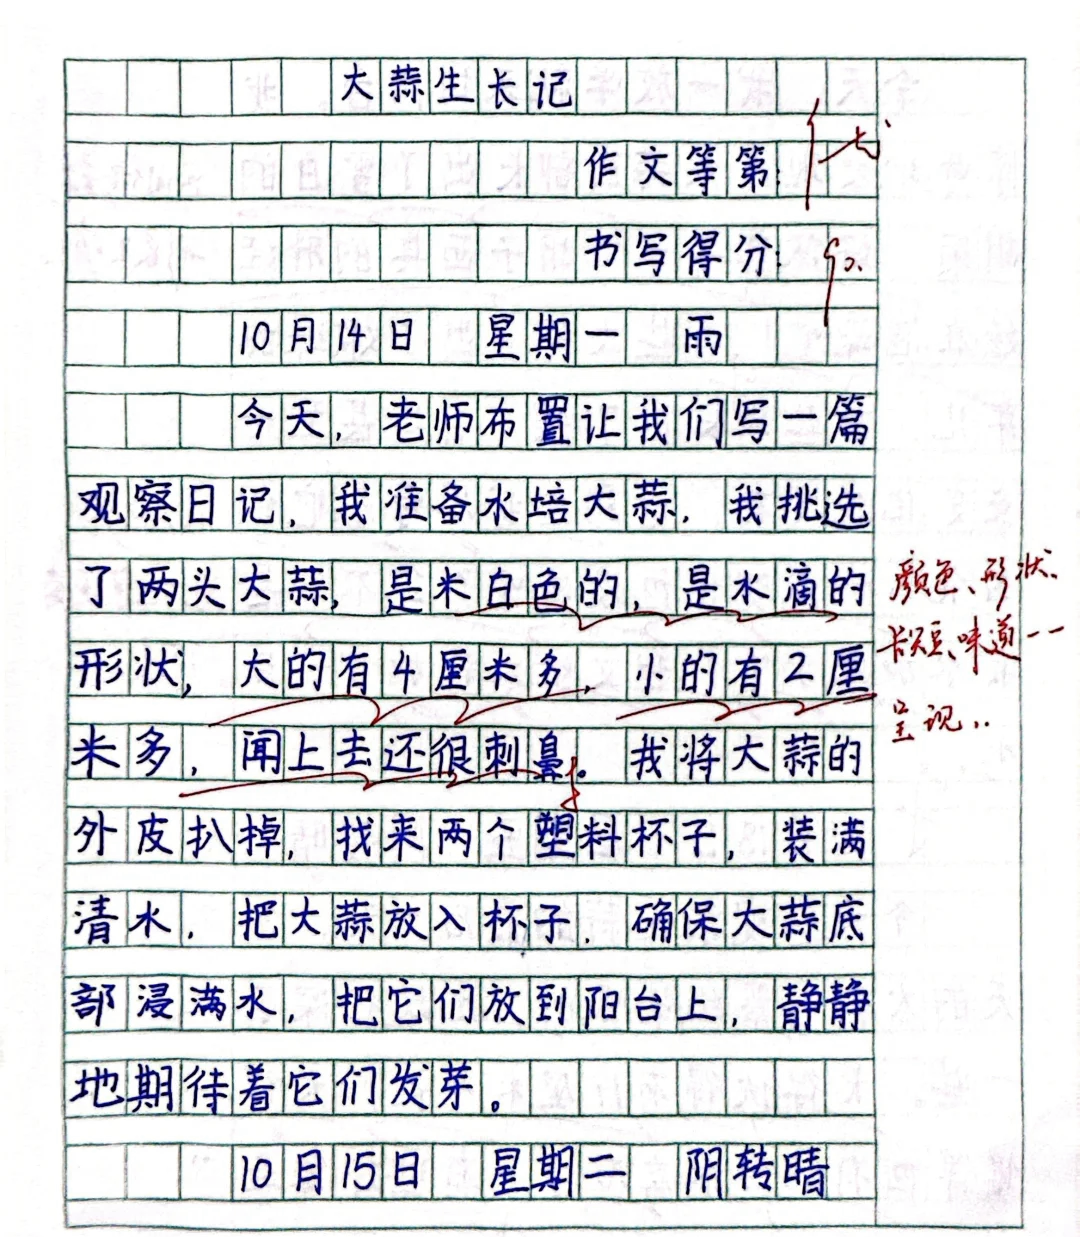 大蒜生长记
作文等第: 优
书写得分: 90.
10月14日 星期一 雨
今天,老师布置让我们写一篇
观察日记,我准备水培大蒜,我挑选
了两头大蒜,是米白色的,是水滴的
形状,大的有4厘米多,小的有2厘
米多,闻上去还很刺鼻。我将大蒜的
外皮扒掉,找来两个塑料杯子,装满
清水,把大蒜放入杯子,确保大蒜底
部浸满水,把它们放到阳台上,静静
地期待着它们发芽。
10月15日 星期二 阴转晴
颜色、形状、
长短、味道一一
呈现..